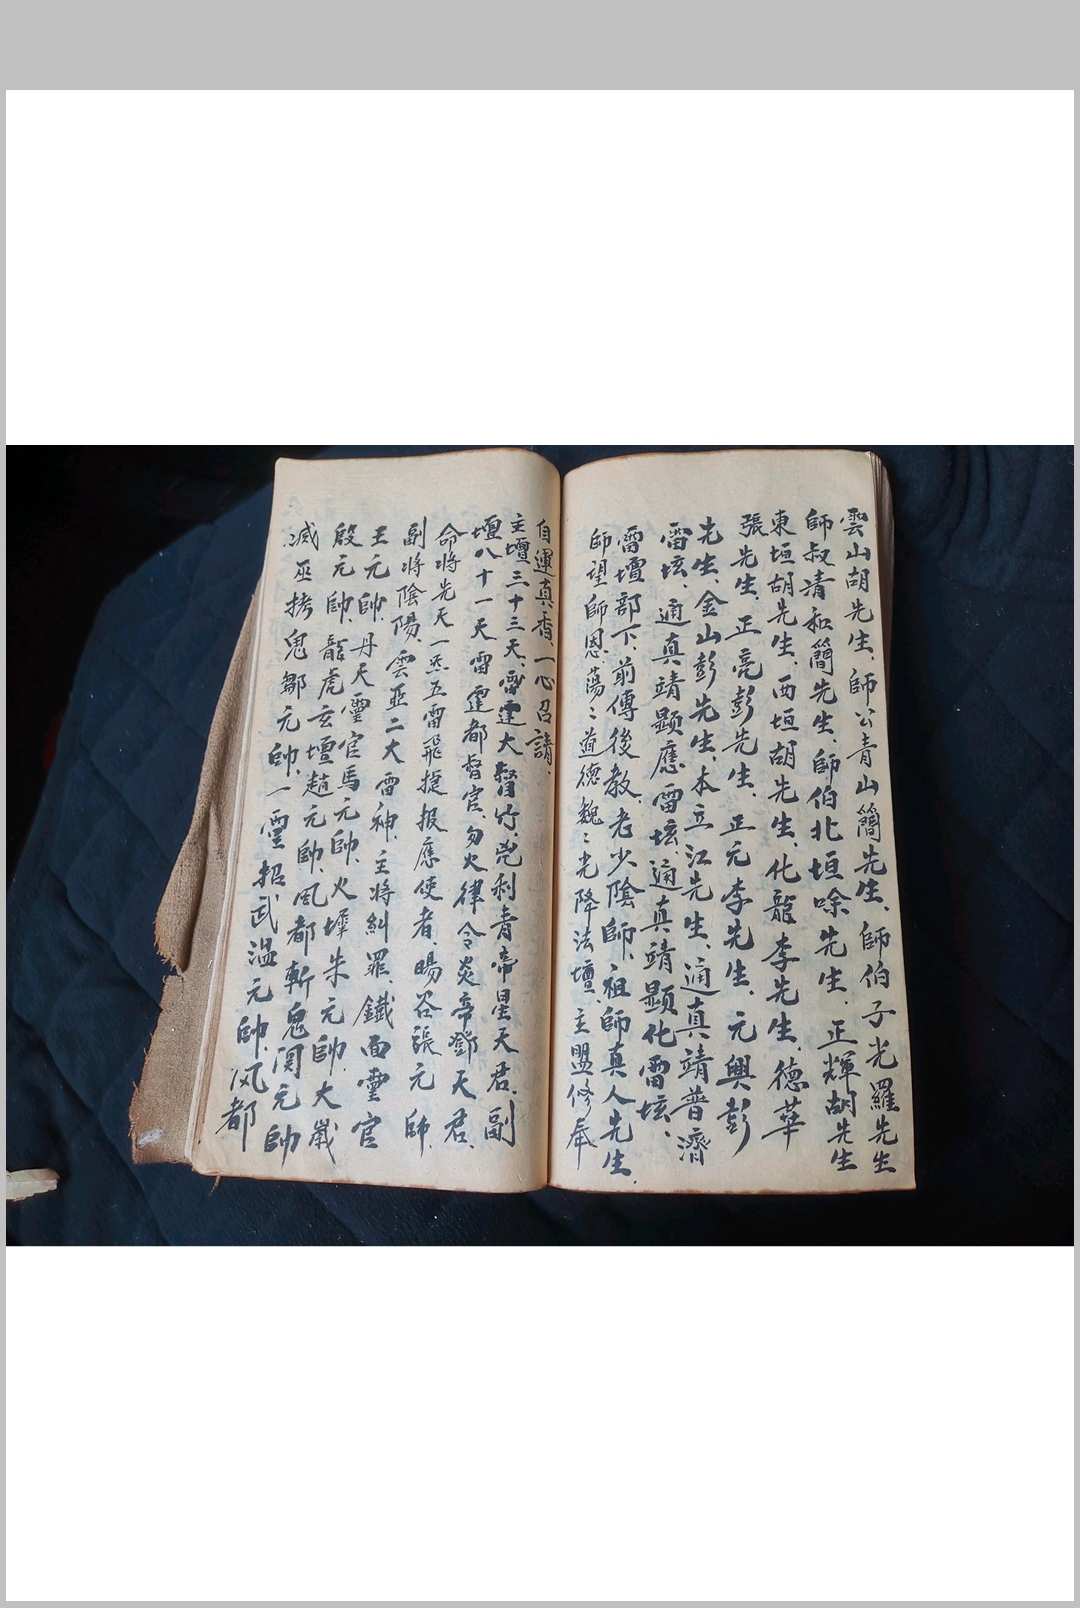 雲山胡先生、師公青山簡先生、師伯子光羅先生
師叔清和簡先生、師伯北垣喩先生、正輝胡先生
東垣胡先生、西垣胡先生、化龍李先生、德華
張先生、正亮彭先生、正元李先生、元興彭
先生、金山彭先生、本立江先生、通真靖普濟
雷坛、通真靖顯應雷坛、通真靖顯化雷坛、
雷壇部下、前傳後教、老少陰師、祖師真人先生、
師望師恩蕩〻道德巍〻光降法壇、主盟修奉
自運真香、一心召請、
主壇三十三天、雷霆大督竹、兇利青帝星天君、副
壇八十一天雷霆都督官、勿火律令炎帝鄧天君、
命將先天一炁五雷飛捷报應使者、暘谷張元師、
副將陰陽、雲亚二大雷神、主將糾罪、鐵面靈官
王元帥、丹天靈官馬元帥、火犀朱元帥、大歲
殷元帥、龍虎玄壇趙元帥、风都斬鬼関元帥
滅巫拷鬼鄒元帥、一靈招武溫元帥、风都